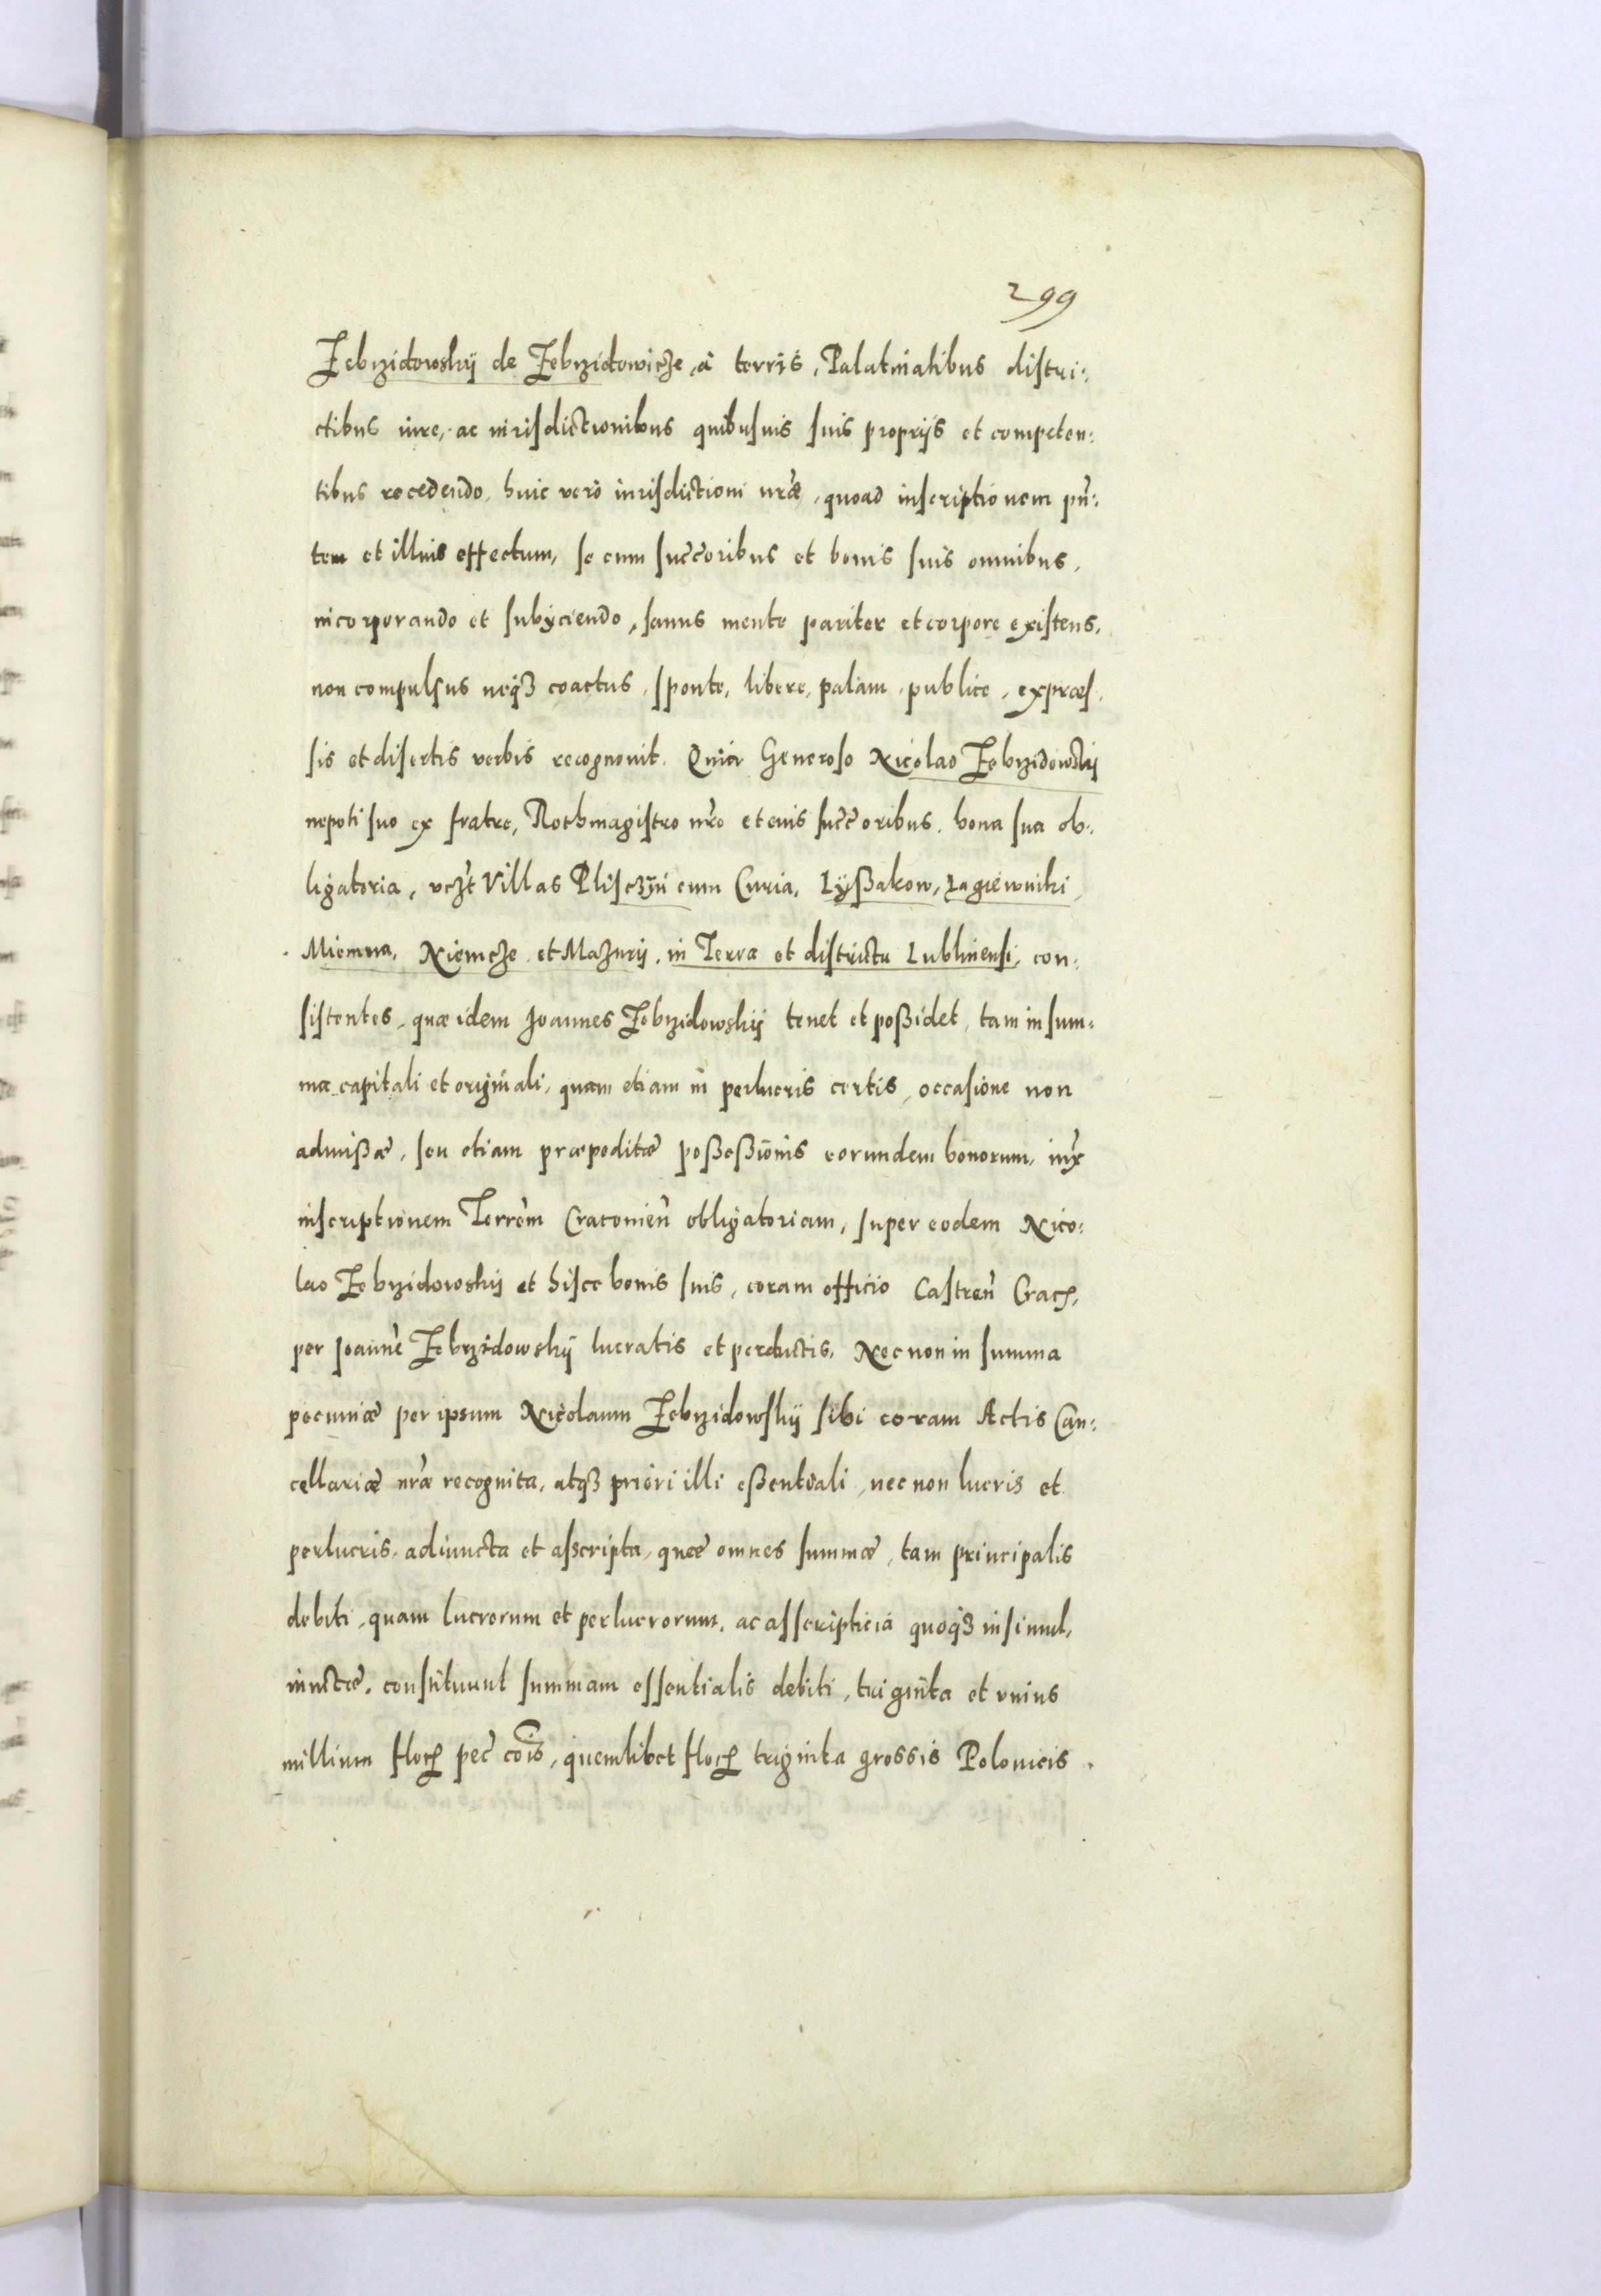 299
Zebrzidowskij de Zebrzidowicze, à terris, Palatinatibus distri:
ctibus iure, ac iurisdictionibus quibusuis suis proprijs et competen:
tibus recedendo, huic verò iurisdictioni nr̃æ, quoad inscriptionem pñ:
tem et illius effectum, se cum succ̃oribus et bonis suis omnibus,
incorporando et subijciendo, sanus mente pariter et corpore existens,
non compulsus neq̃ꝫ coactus, sponte, libere, palam, publice, expræs,
sis et disertis verbis recognouit. Quia Generoso Nicolao Zebrzidowskij
nepoti suo ex fratre, Rothmagistro nr̃o et eius succ̃oribus, bona sua ob:
ligatoria, vcz̃t Villas Plisczÿn cum Curia, Lÿßakow, Łagiewniki,
Miemna, Niemcze et Mazurij, in Terra et districtu Lublinensi, con:
sistentes, quæ idem Joannes Zebrzidowskij tenet et poßidet, tam in sum:
ma capitali et originali, quam etiam in perlucris certis, occasione non
admißæ, seu etiam præpeditæ poßeßionis eorundem bonorum, iux̃
inscriptionem Terrem̃ Cracouien̄ obligatoriam, super eodem Nico:
lao Zebrzidowskij et hisce bonis suis, coram officio Castren̄ Cracꝭ,
per Joanne͂ Zebrzidowskij lucratis et perductis, Nec non in summa
pecuniæ per ipsum Nicolaum Zebrzidowskij sibi coram Actis Can:
cellariæ nr̃æ recognita, atq̃ꝫ priori illi eßentiali, nec non lucris et
perlucris, adiuncta et asscripta, quæ omnes summæ, tam principalis
debiti, quam lucrorum et perlucrorum, ac asscripticia quoq̃ꝫ insimul,
iunctæ, constituunt summam essentialis debiti, triginta et vnius
millium florꝭ pec̃ cõis, quemlibet florꝭ triginta grossis Polonicis.